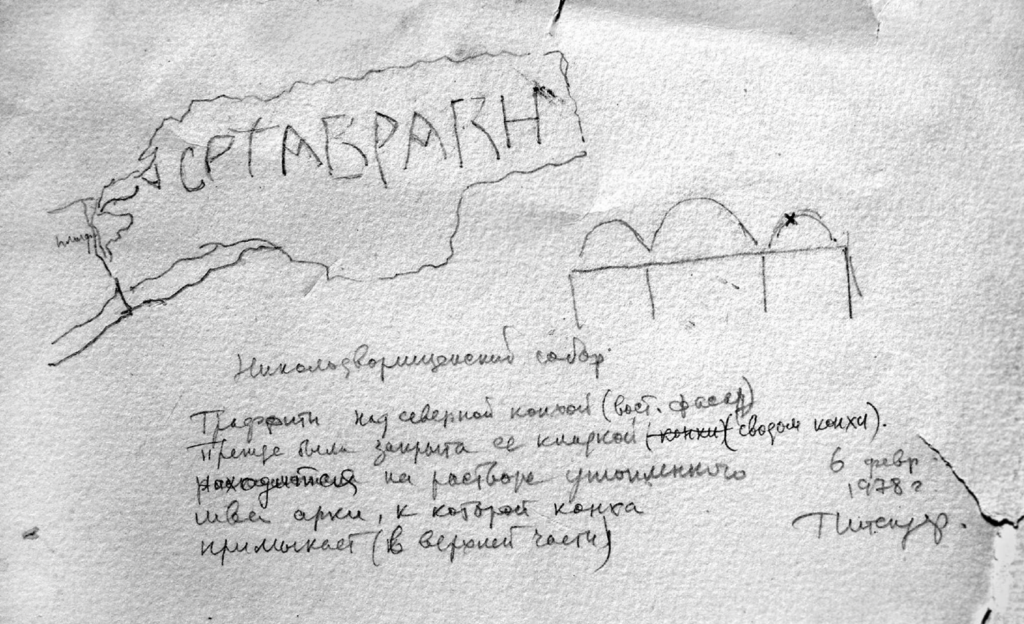 СРТАВРАВН
Николодворищенский собор
Граффити над северной конхой (вост. фасад)
Прежде была закрыта ее кладкой (конхи) (сводом конхи).
находится на растворе утолщенного
шва арки, к которой конха
примыкает (в верхней части)
6 февр
1978 г